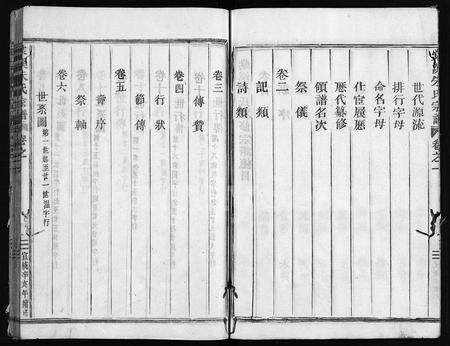 世代源流
排行字母
命名字母
仕宦展應
歷代纂修
領譜名次
祭儀
卷二
記類
詩類
卷三
傳贊
卷四
行狀
節傳
卷五
壽序
祭軸
卷六
世系圖
第一世至廿一世溫字行
朱氏宗譜
卷之一